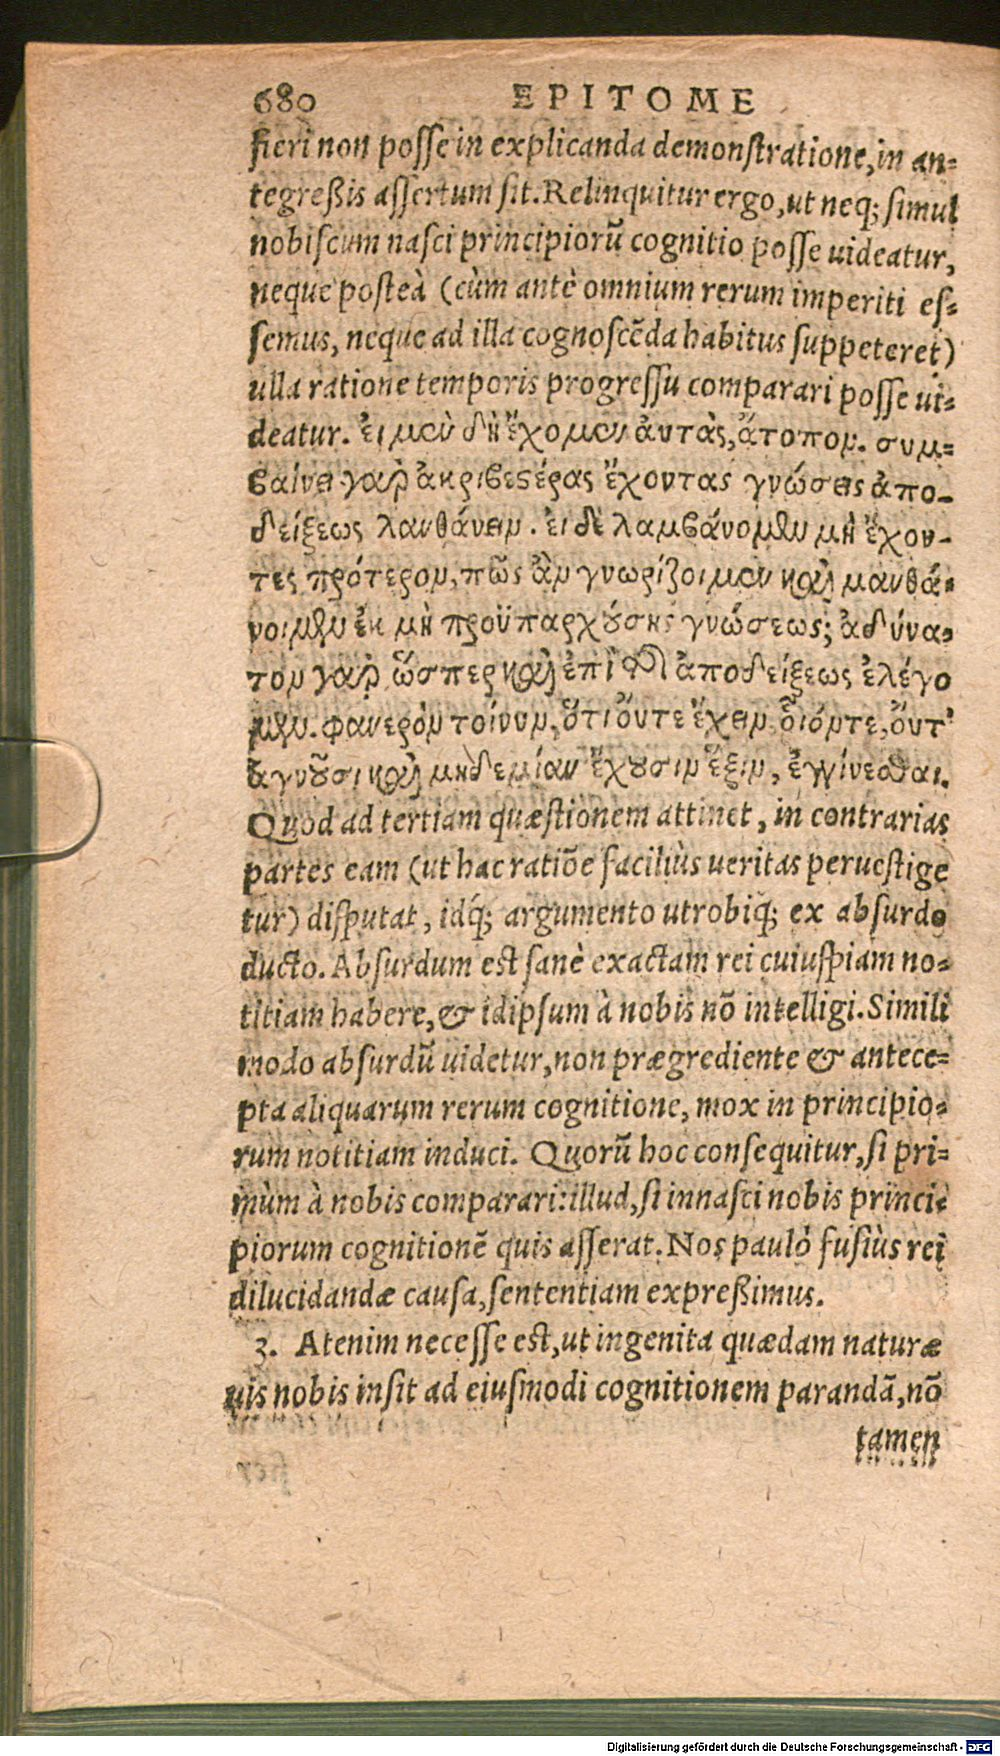 680 EPITOME
fieri non posse in explicanda demonstratione, in an-
tegreßis assertum sit. Relinquitur ergo, ut neq; simul
nobiscum nasci principiorũ cognitio posse uideatur,
neque posteà (cùm antè omnium rerum imperiti es-
semus, neque ad illa cognoscẽda habitus suppeteret)
ulla ratione temporis progressu comparari posse ui-
deatur. ἐι μὲν δὴ ἔχομεν ἀυτὰς, ἄτοπον. συμ-
βαίνει γαρ ἀκριβεςέρας ἔχοντας γνώσεις ἀπο-
δείξεως λανθάνειν. ἐι δὲ λαμβάνομεν μὴ ἔχον-
τες πρότερον, πῶς ἂν γνωρίζοιμεν καὶ μανθά-
νοιμεν ἐκ μὴ προϋπαρχόυσης γνώσεως; ἀδύνα-
τον γαρ, ὥσπερ καὶ ἐπὶ τῆς ἀποδείξεως ἐλέγο
μεν. φανερὸν τοίνυν, ὅτι ὄυτε ἔχειν οἷόντε, ὄυτ'
ἀγνοῦσι καὶ μηδεμίαν ἔχουσιν ἕξιν, ἐγγίνεσθαι.
Quod ad tertiam quæstionem attinet, in contrarias
partes eam (ut hac ratiõe faciliùs ueritas peruestige
tur) disputat, idq́; argumento utrobiq́; ex absurdo
ducto. Absurdum est sanè exactam rei cuiuspiam no-
titiam habere, & idipsum à nobis nõ intelligi. Simili
modo absurdũ uidetur, non prægrediente & antece-
pta aliquarum rerum cognitione, mox in principio-
rum notitiam induci. Quorũ hoc consequitur, si pri-
mùm à nobis comparari: illud, si innasci nobis princi-
piorum cognitionẽ quis asserat. Nos paulò fusiùs rei
dilucidandæ causa, sententiam expreßimus.
3. Atenim necesse est, ut ingenita quædam naturæ
uis nobis insit ad eiusmodi cognitionem parandã, nõ
tamen
Digitalisierung gefördert durch die Deutsche Forschungsgemeinschaft - DFG